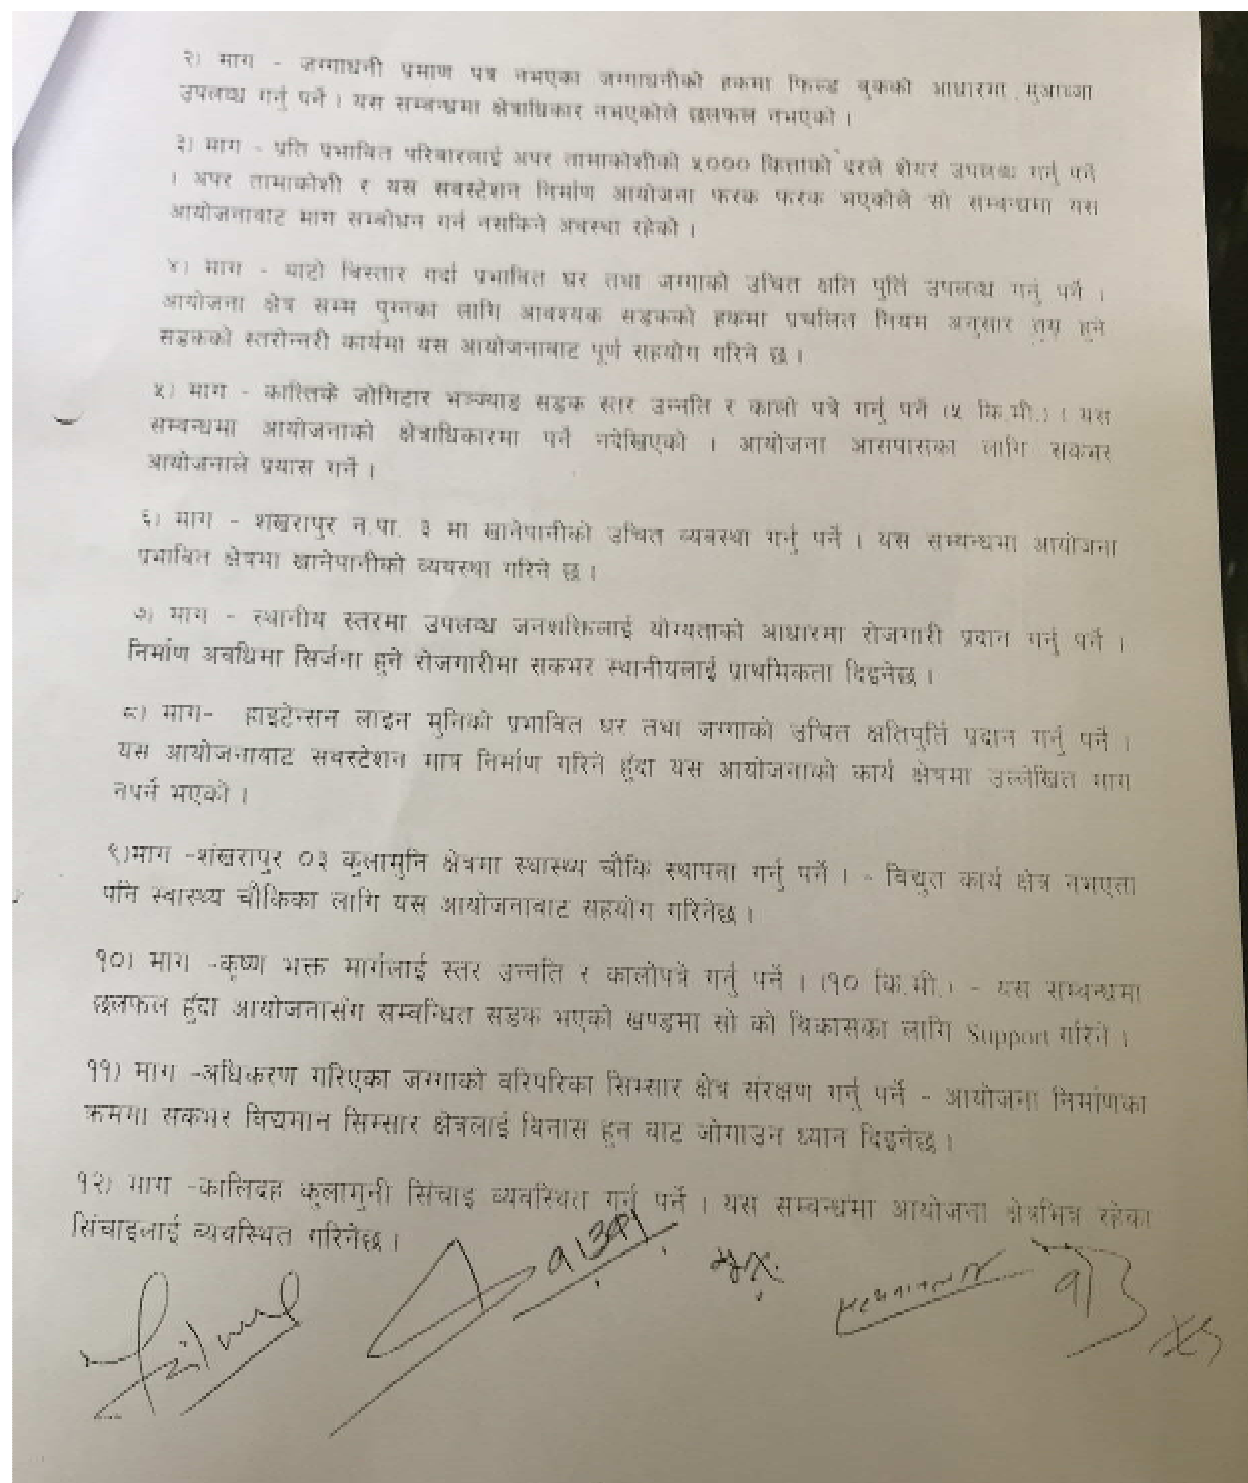 २) माग - जग्गाधनी प्रमाण पत्र नभएका जग्गाधनीको हकमा फिल्ड बुकको आधारमा मुआब्जा
उपलब्ध गर्नु पर्ने । यस सम्बन्धमा क्षेत्राधिकार नभएकोले छलफल नभएको ।
३) माग - प्रति प्रभावित परिवारलाई अपर तामाकोशीको ५००० कित्ताको दरले शेयर उपलब्ध गर्नु पर्ने
। अपर तामाकोशी र यस सवस्टेशन निर्माण आयोजना फरक फरक भएकोले सो सम्बन्धमा यस
आयोजनाबाट माग सम्बोधन गर्न नसकिने अवस्था रहेको ।
४) माग - बाटो बिस्तार गर्दा प्रभावित घर तथा जग्गाको उचित क्षति पुर्ति उपलब्ध गर्नु पर्ने ।
आयोजना क्षेत्र सम्म पुग्नका लागि आवश्यक सडकको हकमा प्रचलित नियम अनुसार तय हुने
सडकको स्तरोन्नती कार्यमा यस आयोजनाबाट पूर्ण सहयोग गरिने छ ।
५) माग - कात्तिके जोगिटार भञ्ज्याङ सडक स्तर उन्नति र कालो पत्रे गर्नु पर्ने (५ कि.मी.) । यस
सम्वन्धमा आयोजनाको क्षेत्राधिकारमा पर्ने नदेखिएको । आयोजना आसपासका लागि सकभर
आयोजनाले प्रयास गर्ने ।
६) माग - शंखरापुर न.पा. ३ मा खानेपानीको उचित व्यवस्था गर्नु पर्ने । यस सम्वन्धमा आयोजना
प्रभावित क्षेत्रमा खानेपानीको व्यवस्था गरिने छ ।
७) माग - स्थानीय स्तरमा उपलब्ध जनशक्तिलाई योग्यताको आधारमा रोजगारी प्रदान गर्नु पर्ने ।
निर्माण अवधिमा सिर्जना हुने रोजगारीमा सकभर स्थानीयलाई प्राथमिकता दिइनेछ ।
८) माग- हाइटेन्सन लाइन मुनिको प्रभावित घर तथा जग्गाको उचित क्षतिपुर्ति प्रदान गर्नु पर्ने ।
यस आयोजनावाट सवस्टेशन मात्र निर्माण गरिने हुँदा यस आयोजनाको कार्य क्षेत्रमा उल्लेखित माग
नपर्ने भएको ।
९)माग -शंखरापुर ०३ कुलामुनि क्षेत्रमा स्वास्थ्य चौकि स्थापना गर्नु पर्ने । - विद्युत कार्य क्षेत्र नभएता
पनि स्वास्थ्य चौकिका लागि यस आयोजनावाट सहयोग गरिनेछ ।
१०) माग -कृष्ण भक्त मार्गलाई स्तर उन्नति र कालोपत्रे गर्नु पर्ने । (१० कि.मी.) - यस सम्वन्धमा
छलफल हुँदा आयोजनासंग सम्वन्धित सडक भएको खण्डमा सो को विकासका लागि Support गरिने ।
११) माग -अधिकरण गरिएका जग्गाको वरिपरिका सिम्सार क्षेत्र संरक्षण गर्नु पर्ने - आयोजना निर्माणका
क्रममा सकभर विद्यमान सिम्सार क्षेत्रलाई विनास हुन वाट जोगाउन ध्यान दिइनेछ ।
१२) माग -कालिदह कुलामुनी सिंचाइ व्यवस्थित गर्नु पर्ने । यस सम्वन्धमा आयोजना क्षेत्रभित्र रहेका
सिंचाइलाई व्यवस्थित गरिनेछ ।